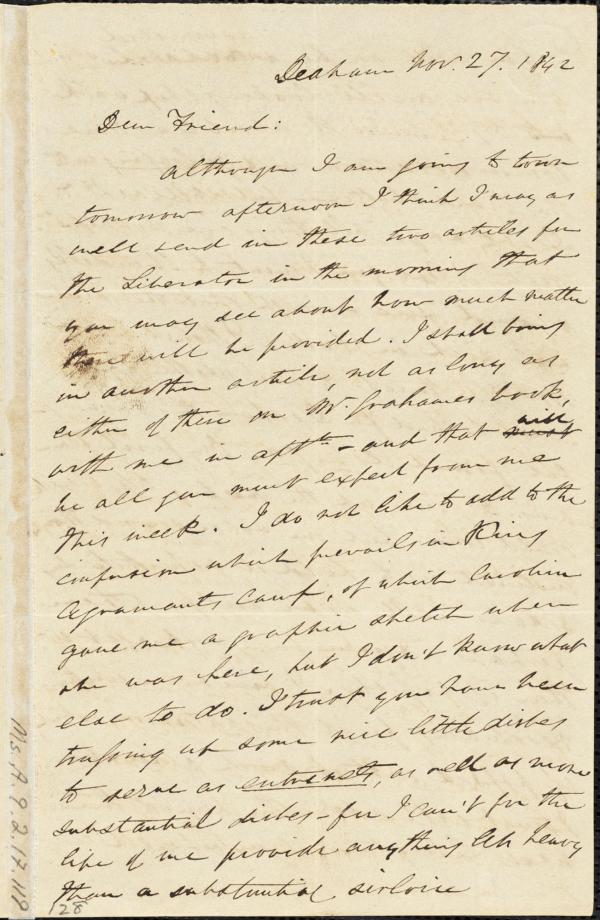 Dedham Nov. 27. 1842
Dear Friend:
Although I am going to town
tomorrow afternoon I think I may as
well send in these two articles for
the Liberator in the morning that
you may see about how much matter
there will be provided. I shall bring
in another article, not as long as
either of these on Mr. Grahames book,
with me in aftn - and that must will
be all you must expect from me
this week. I do not like to add to the
confusion which prevails in King
Agramants camp, of which Caroline
gave me a graphic sketch when
she was here, but I don't know what
else to do. I trust you have been
trussing up some nice little dishes
to serve as entremets, as well as more
substantial dishes - for I can't for the
life of me provide anything less heavy
than a substantial sirloin
Ms. A. 9. 2. 17. 119
128